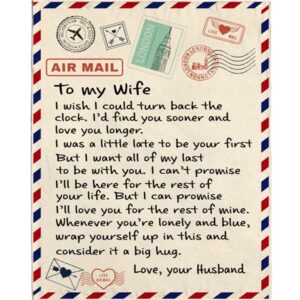 LONDON
LOVE MAIL
LONDON LONDON
AIR MAIL
To my Wife
I wish I could turn back the
clock. I'd find you sooner and
love you longer.
I was a little late to be your first
But I want all of my last
to be with you. I can't promise
I'll be here for the rest of
your life. But I can promise
I'll love you for the rest of mine.
Whenever you're lonely and blue,
wrap yourself up in this and
consider it a big hug.
Love, your Husband